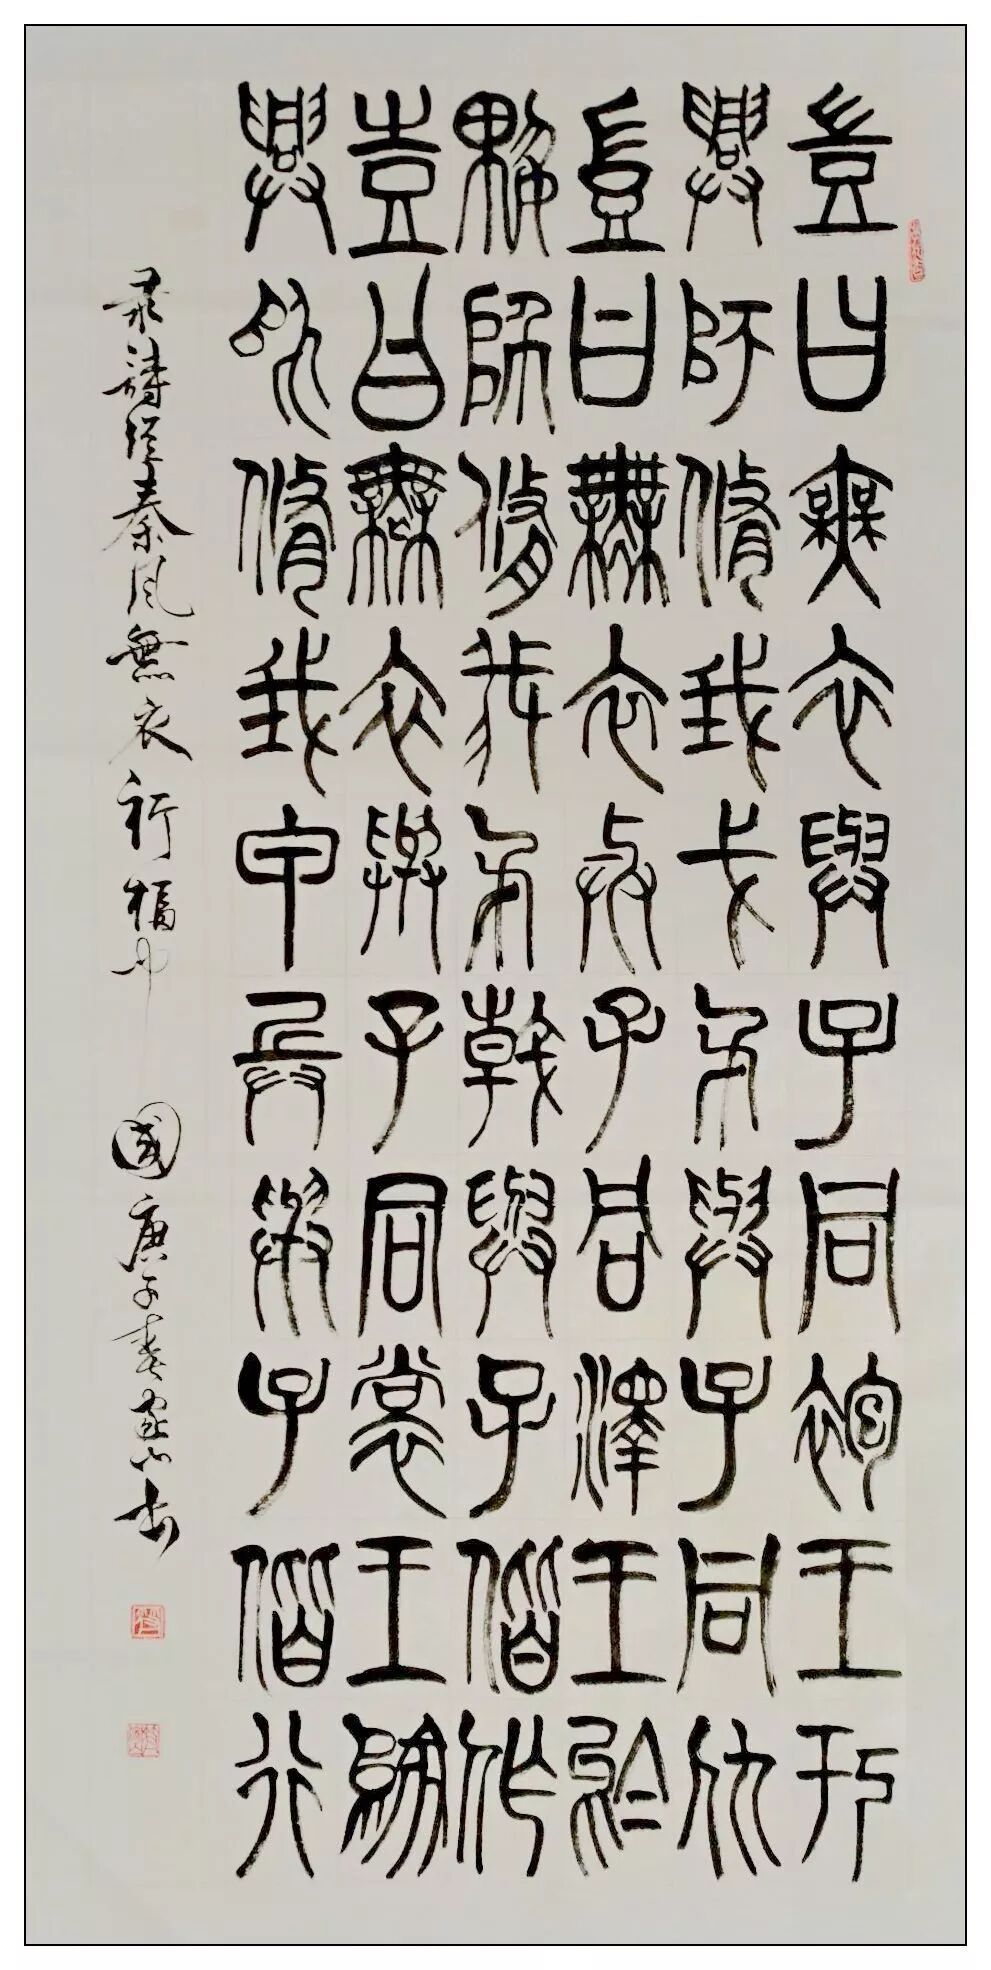 豈曰無衣與子同袍王于
興師脩我戈矛與子同仇
豈曰無衣與子同澤王于
興師脩我矛戟與子偕作
豈曰無衣與子同裳王于
興師脩我甲兵與子偕行
录詩經秦風無衣祈福中國庚子春书